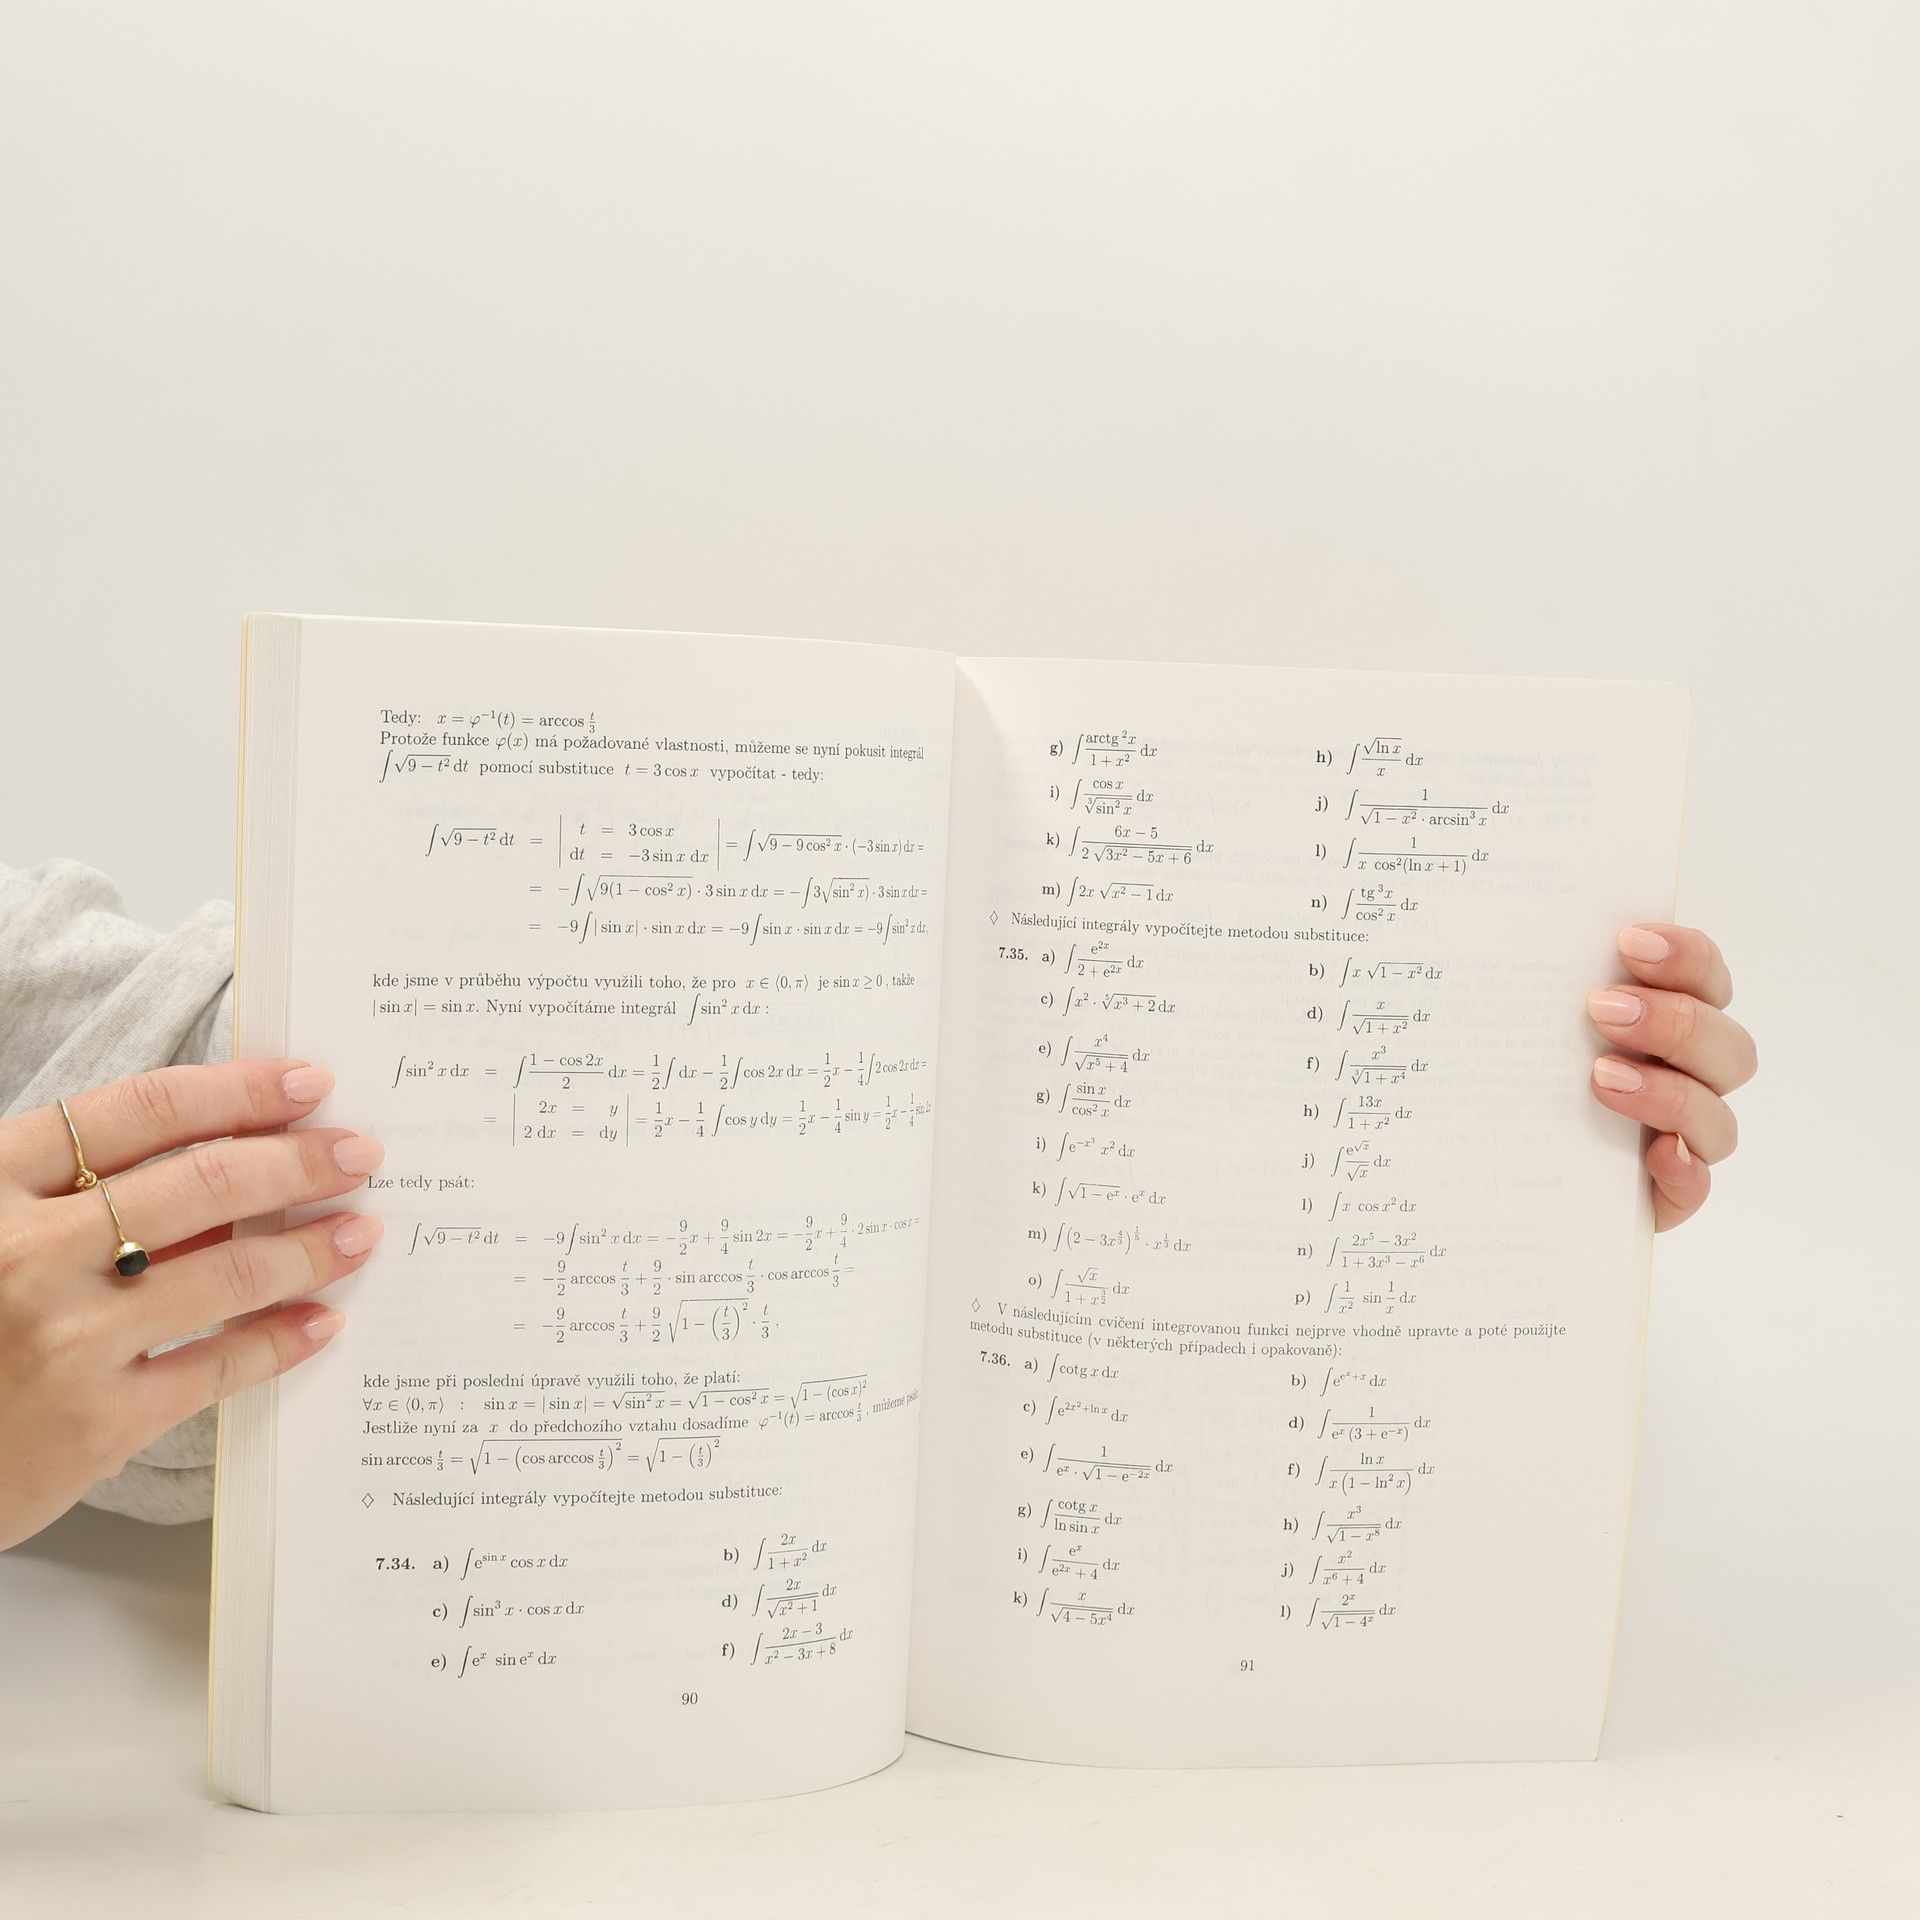 Tedy: x = φ⁻¹(t) = arccos t/3
Protože funkce φ(x) má požadované vlastnosti, můžeme se nyní pokusit integrál
∫√(9 − t²) dt pomocí substituce t = 3 cos x vypočítat - tedy:
∫√(9 − t²) dt = | t = 3 cos x; dt = −3 sin x dx | = ∫√(9 − 9 cos² x) · (−3 sin x) dx =
= −∫√(9(1 − cos² x)) · 3 sin x dx = −∫3√(sin² x) · 3 sin x dx =
= −9∫|sin x| · sin x dx = −9∫sin x · sin x dx = −9∫sin² x dx,
kde jsme v průběhu výpočtu využili toho, že pro x ∈ ⟨0, π⟩ je sin x ≥ 0, takže
|sin x| = sin x. Nyní vypočítáme integrál ∫sin² x dx :
∫sin² x dx = ∫(1 − cos 2x)/2 dx = 1/2 ∫dx − 1/2 ∫cos 2x dx = 1/2 x − 1/4 ∫2 cos 2x dx =
= | 2x = y; 2 dx = dy | = 1/2 x − 1/4 ∫cos y dy = 1/2 x − 1/4 sin y = 1/2 x − 1/4 sin 2x
Lze tedy psát:
∫√(9 − t²) dt = −9∫sin² x dx = −9/2 x + 9/4 sin 2x = −9/2 x + 9/4 · 2 sin x · cos x =
= −9/2 arccos t/3 + 9/2 · sin arccos t/3 · cos arccos t/3 =
= −9/2 arccos t/3 + 9/2 √(1 − (t/3)²) · t/3 ,
kde jsme při poslední úpravě využili toho, že platí:
∀x ∈ ⟨0, π⟩ : sin x = |sin x| = √(sin² x) = √(1 − cos² x) = √(1 − (cos x)²)
Jestliže nyní za x do předchozího vztahu dosadíme φ⁻¹(t) = arccos t/3, můžeme psát:
sin arccos t/3 = √(1 − (cos arccos t/3)²) = √(1 − (t/3)²)
◇ Následující integrály vypočítejte metodou substituce:
7.34. a) ∫e^(sin x) cos x dx b) ∫2x/(1 + x²) dx
c) ∫sin³ x · cos x dx d) ∫2x/√(x² + 1) dx
e) ∫eˣ sin eˣ dx f) ∫(2x − 3)/(x² − 3x + 8) dx
90
g) ∫arctg ²x/(1 + x²) dx h) ∫√(ln x)/x dx
i) ∫cos x/∛(sin² x) dx j) ∫1/(√(1 − x²) · arcsin³ x) dx
k) ∫(6x − 5)/(2 √(3x² − 5x + 6)) dx l) ∫1/(x cos²(ln x + 1)) dx
m) ∫2x √(x² − 1) dx n) ∫tg ³x/cos² x dx
◇ Následující integrály vypočítejte metodou substituce:
7.35. a) ∫e^(2x)/(2 + e^(2x)) dx b) ∫x √(1 − x²) dx
c) ∫x² · ⁵√(x³ + 2) dx d) ∫x/√(1 + x²) dx
e) ∫x⁴/√(x⁵ + 4) dx f) ∫x³/∛(1 + x⁴) dx
g) ∫sin x/cos² x dx h) ∫13x/(1 + x²) dx
i) ∫e^(−x³) x² dx j) ∫e^(√x)/√x dx
k) ∫√(1 − eˣ) · eˣ dx l) ∫x cos x² dx
m) ∫(2 − 3x^(4/3))^(1/5) · x^(1/3) dx n) ∫(2x⁵ − 3x²)/(1 + 3x³ − x⁶) dx
o) ∫√x/(1 + x^(3/2)) dx p) ∫1/x² sin 1/x dx
◇ V následujícím cvičení integrovanou funkci nejprve vhodně upravte a poté použijte
metodu substituce (v některých případech i opakovaně):
7.36. a) ∫cotg x dx b) ∫e^(eˣ+x) dx
c) ∫e^(2x²+ln x) dx d) ∫1/(eˣ (3 + e⁻ˣ)) dx
e) ∫1/(eˣ · √(1 − e^(−2x))) dx f) ∫ln x/(x (1 − ln² x)) dx
g) ∫cotg x/ln sin x dx h) ∫x³/√(1 − x⁸) dx
i) ∫eˣ/(e^(2x) + 4) dx j) ∫x²/(x⁶ + 4) dx
k) ∫x/√(4 − 5x⁴) dx l) ∫2ˣ/√(1 − 4ˣ) dx
91